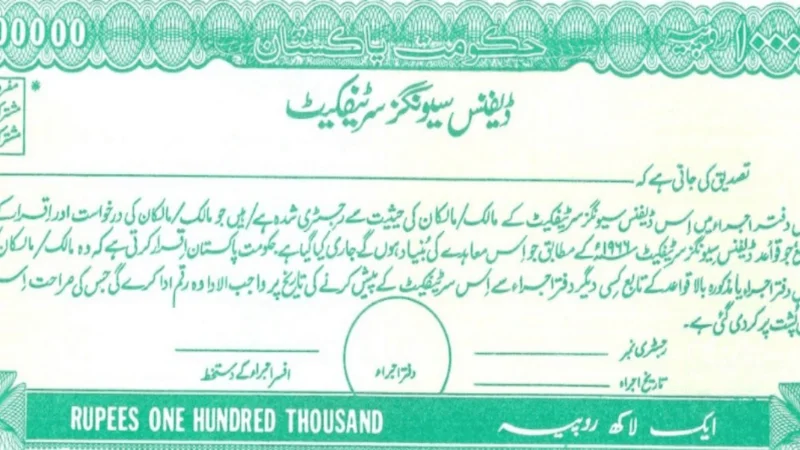 00000 حکومت پاکستان ۱۰۰۰ روپیہ
ڈیفنس سیونگز سرٹیفکیٹ
*
مشترکہ
مشترکہ
تصدیق کی جاتی ہے کہ
دفتر اجراء میں اِس ڈیفنس سیونگز سرٹیفکیٹ کے مالک/مالکان کی حیثیت سے رجسٹری شدہ ہے/ہیں جو مالک/مالکان کی درخواست اور اِقرار کے
جو قواعد ڈیفنس سیونگز سرٹیفکیٹ ۱۹۶۶ء کے مطابق جو اِس معاہدے کی بُنیاد ہوں گے جاری کیا گیا ہے حکومت پاکستان اِقرار کرتی ہے کہ وہ مالک/مالکان
دفتر اجراء یا مذکورہ بالا قواعد کے تابع کِسی دیگر دفتر اجراء سے اِس سرٹیفکیٹ کے پیش کرنے کی تاریخ پر واجب الادا وہ رقم ادا کرے گی جس کی صراحت اِس
پُشت پر کر دی گئی ہے۔
رجسٹری نمبر
تاریخ اجراء
دفتر اجراء
افسر اجراء کے دستخط
RUPEES ONE HUNDRED THOUSAND ایک لاکھ روپیہ